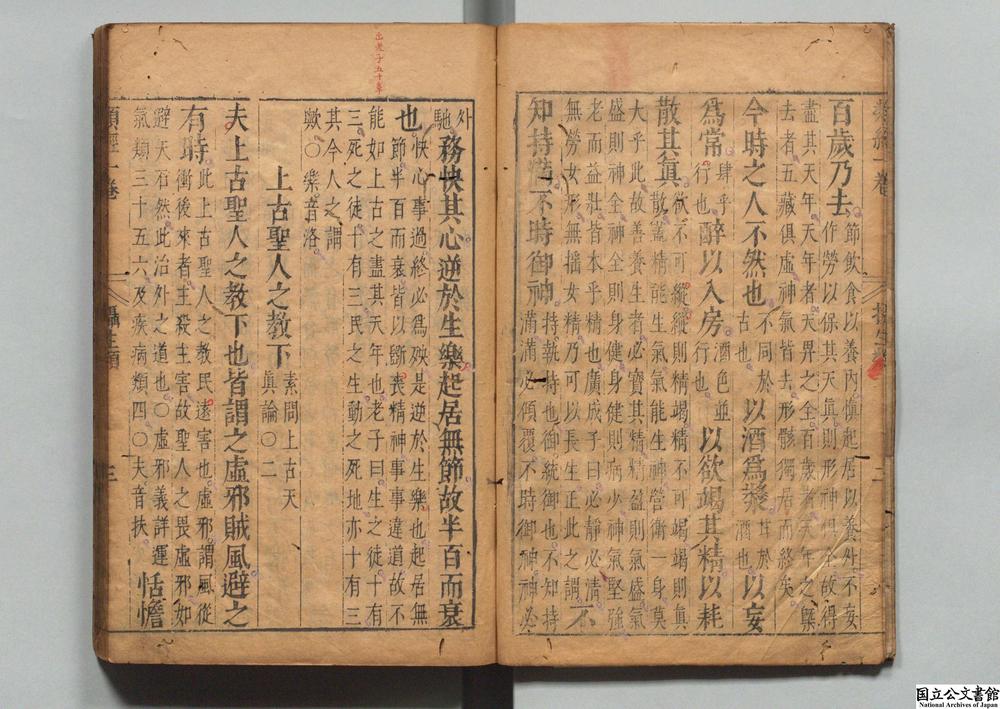 類經一卷
百歲乃去節飲食以養內慎起居以養外不妄
作勞以保其天眞則形神俱全故得
盡其天年天年者天畀之全百歲者天年之槩
去者五藏俱虛神氣皆去形骸獨居而終矣
今時之人不然也不同於
古也以酒爲漿甘於
酒也以妄
爲常肆乎
行也醉以入房酒色並
行也以欲竭其精以耗
散其眞欲不可縱縱則精竭精不可竭竭則眞
散蓋精能生氣氣能生神營衛一身莫
大乎此故善養生者必寶其精精盈則氣盛氣
盛則神全神全則身健身健則病少神氣堅強
老而益壯皆本乎精也廣成子曰必靜必清
無勞女形無搖女精乃可以長生正此之謂不
知持滿不時御神持執持也御統御也不知持
滿滿必傾覆不時御神神必
外
馳務快其心逆於生樂起居無節故半百而衰
也快心事過終必爲殃是逆於生樂也起居無
節半百而衰皆以斷喪精神事事違道故不
能如上古之盡其天年也老子曰生之徒十有
三死之徒十有三民之生動之死地亦十有三
其今人之謂
歟○樂音洛
上古聖人之教下素問上古天
眞論○二
夫上古聖人之教下也皆謂之虛邪賊風避之
有時此上古聖人之教民遠害也虛邪謂風從
衝後來者主殺主害故聖人之畏虛邪如
避天石然此治外之道也○虛邪義詳運
氣類三十五六及疾病類四○夫音扶恬憺
類經一卷
攝生類
三
出老子五十章
国立公文書館
National Archives of Japan